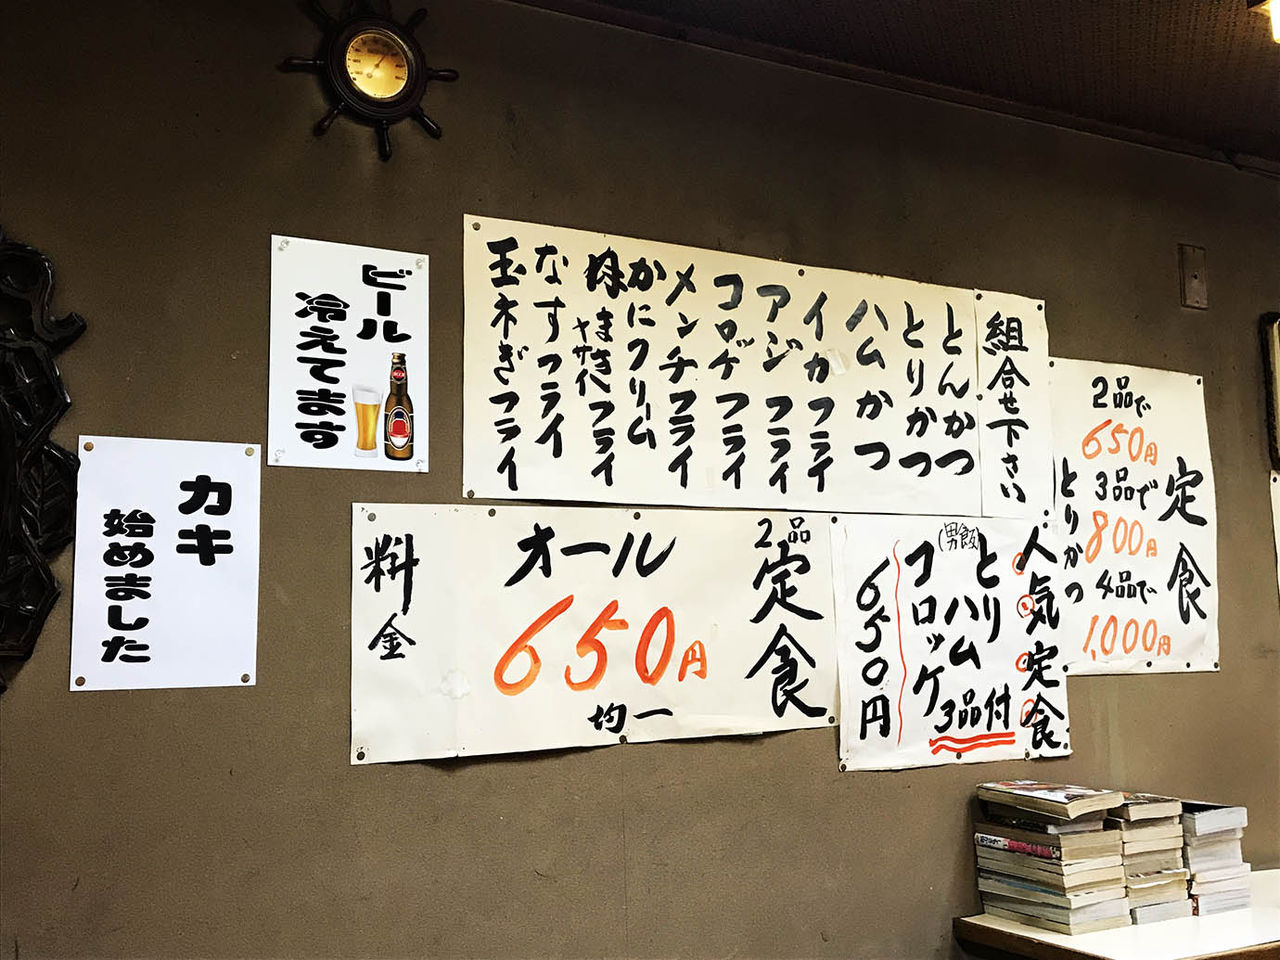 ビール
冷えてます
カキ
始めました
組合せ下さい
とんかつ
とりかつ
ハムかつ
イカフライ
アジフライ
コロッケフライ
メンチフライ
かにクリーム
フライ
なすフライ
玉ネぎフライ
定食
2品で
650円
3品で
800円
4品で
1,000円
とりかつ
2品
定食
オール
650円
均一
料金
人気定食
とり
ハム
(男飯)
コロッケ
3品付
650円